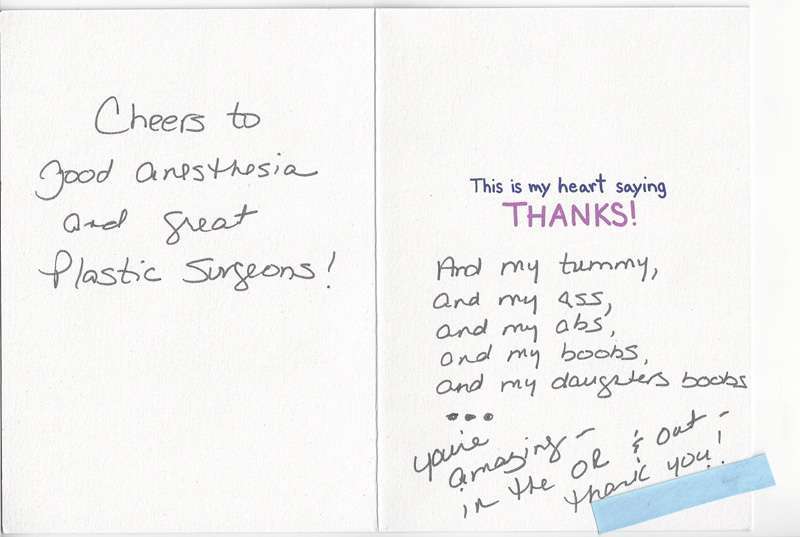 Cheers to
good anesthesia
and great
Plastic Surgeons!
This is my heart saying
THANKS!
And my tummy,
and my ass,
and my abs,
and my boobs,
and my daughters boobs
...
you're
amazing -
in the OR & out -
thank you!